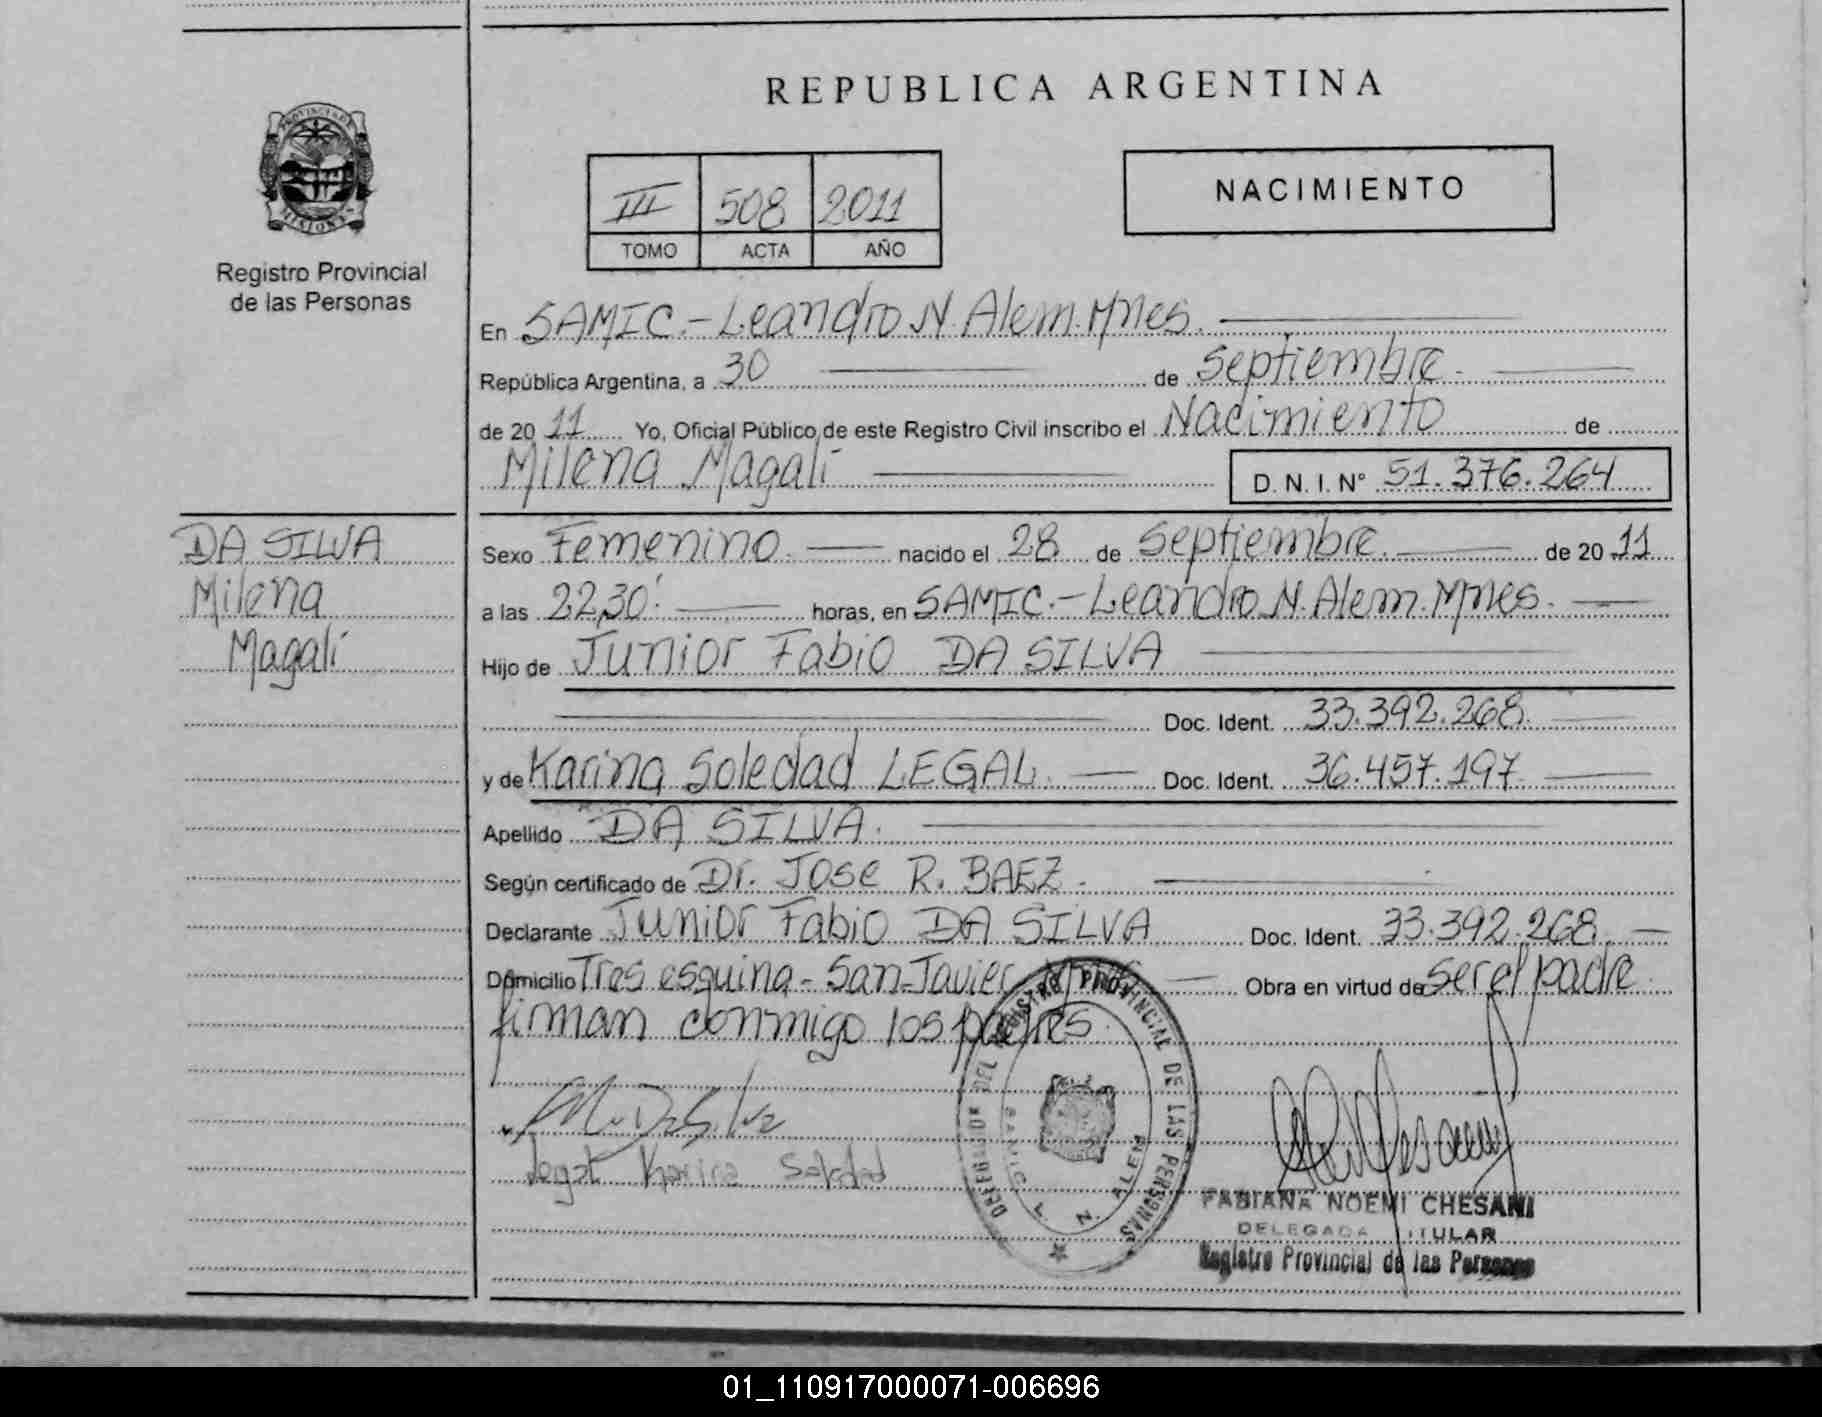 REPUBLICA ARGENTINA
PROVINCIA DE
MISIONES
Registro Provincial
de las Personas
NACIMIENTO
III 508 2011
TOMO ACTA AÑO
En SAMIC.-Leandro N. Alem. Mnes.
República Argentina, a 30 de Septiembre.
de 20 11 Yo, Oficial Público de este Registro Civil inscribo el Nacimiento de
Milena Magalí D. N. I. N° 51.376.264
DA SILVA
Milena
Magalí
Sexo Femenino. nacido el 28 de Septiembre. de 20 11
a las 22,30. horas, en SAMIC.-Leandro N. Alem. Mnes.
Hijo de Junior Fabio DA SILVA
Doc. Ident. 33.392.268.
y de Karina Soledad LEGAL. Doc. Ident. 36.457.197.
Apellido DA SILVA.
Según certificado de Dr. Jose R. BAEZ.
Declarante Junior Fabio DA SILVA Doc. Ident. 33.392.268.
Domicilio Tres esquina - San Javier Obra en virtud de ser el padre.
firman conmigo los padres.
Da Silva
Legal Karina Soledad
DEL REGISTRO PROVINCIAL DE LAS PERSONAS
SAMIC L. N. ALEM
FABIANA NOEMI CHESANI
DELEGADA TITULAR
Registro Provincial de las Personas
01_110917000071-006696